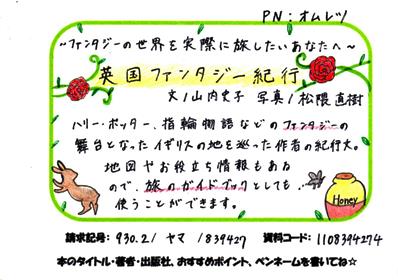 PN:オムレツ
~ファンタジーの世界を実際に旅したいあなたへ~
英国ファンタジー紀行
文/山内史子 写真/松隈直樹
ハリー・ポッター、指輪物語などのファンタジーの
舞台となったイギリスの地を巡った作者の紀行文。
地図やお役立ち情報もある
ので、旅のガイドブックとしても
使うことができます。
Honey
請求記号: 930.2/ ヤマ /839427 資料コード: 1108394274
本のタイトル・著者・出版社、おすすめポイント、ペンネームを書いてね☆